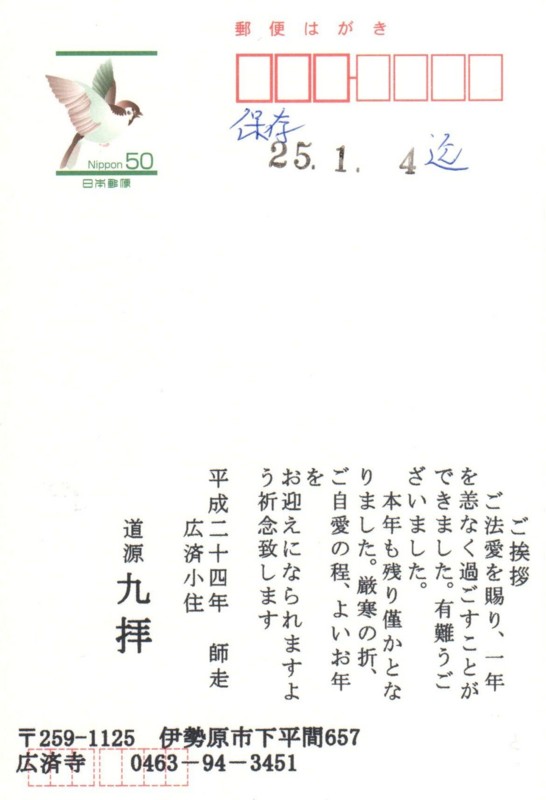 郵便はがき
Nippon 50
日本郵便
保存
25.1.4迄
ご挨拶
ご法愛を賜り、一年
を恙なく過ごすことが
できました。有難うご
ざいました。
本年も残り僅かとな
りました。厳寒の折、
ご自愛の程、よいお年
を
お迎えになられますよ
う祈念致します
平成二十四年 師走
広済小住
道源 九拝
〒259-1125 伊勢原市下平間657
広済寺 0463-94-3451